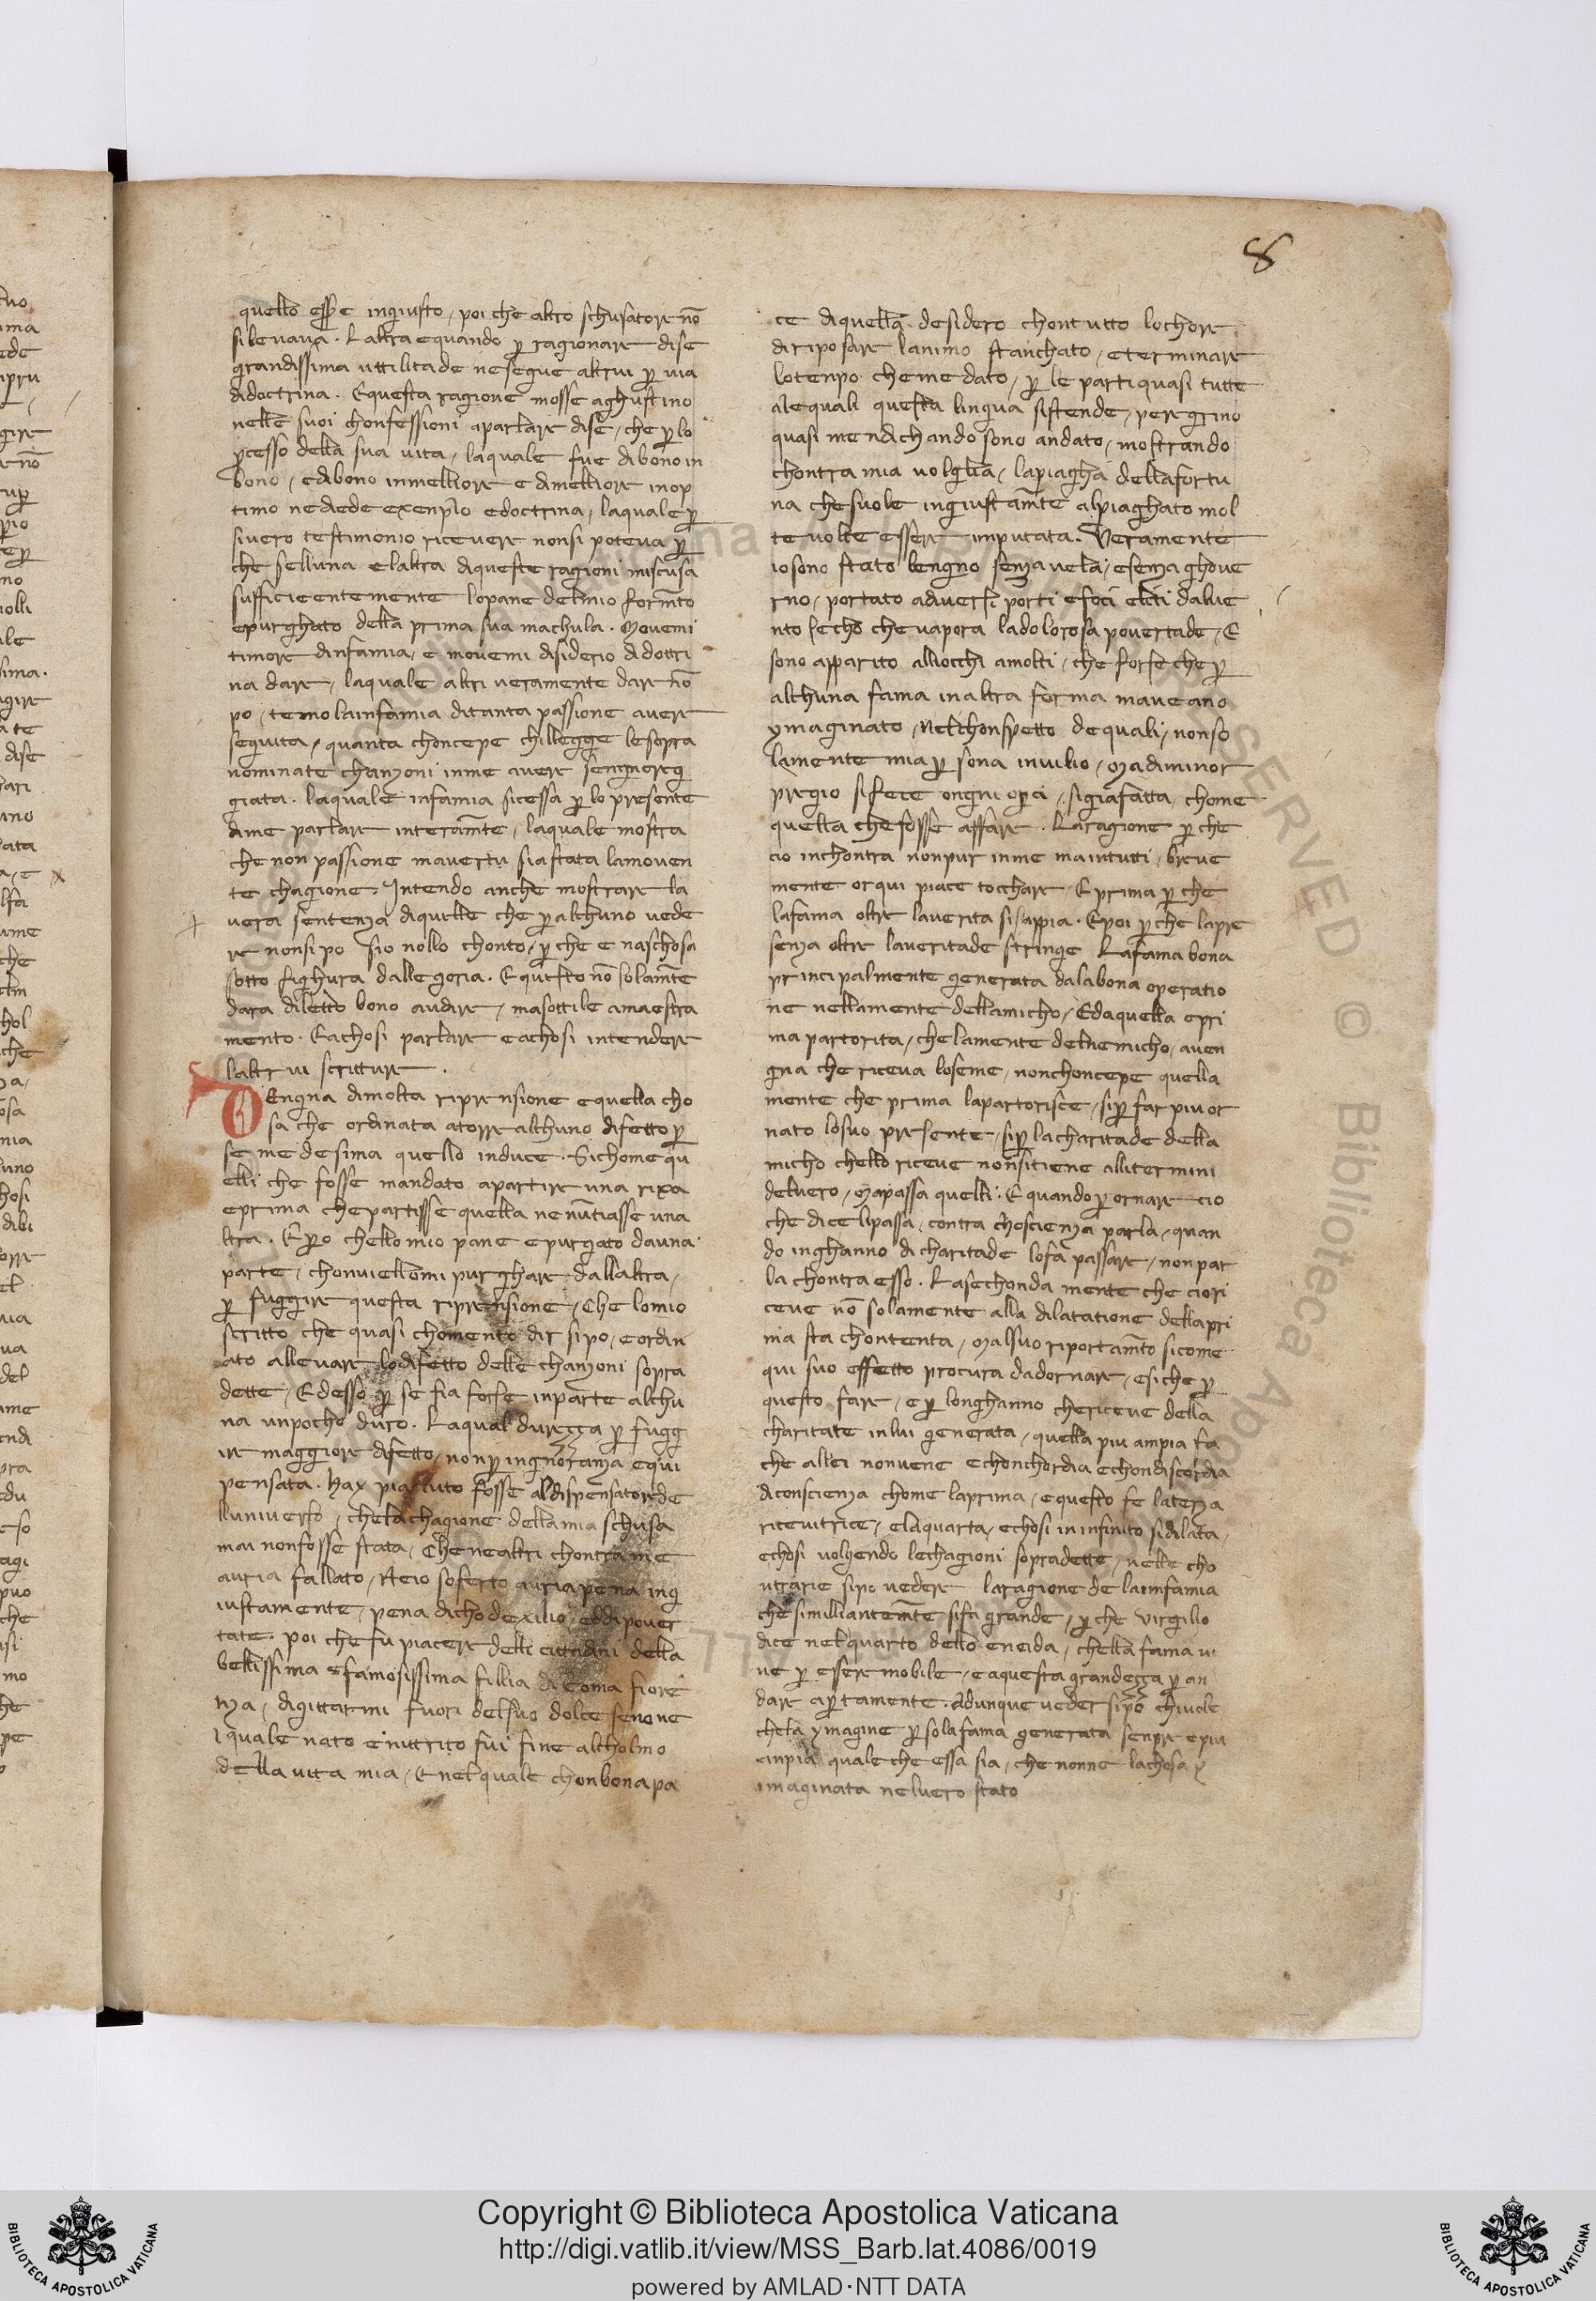 8
quello esse ingiusto, poi che altro schusatore nō
si levava. Laltra e quando p ragionare dise
grandissima uttilitade ne segue altrui p via
didoctrina. E questa ragione mosse aghustino
nelle suoi chonfessioni a parlare disē, che p lo
pcesso della sua vita, laquale fue dibono in
bono, e dibono inmelliore e dimelliore inop
timo ne diede exenplo e doctrina, laquale p
si vero testimonio ricevere nonsi poteva p
che selluna e laltra di queste ragioni mi scusa
sufficieentemente lo pane del mio formēto
e purghato della prima sua machula. Movemi
timore dinfamia, e movemi disiderio didottri
na dare, laquale altri veramente dare nō
po, temo la infamia ditanta passione avere
sequita, quanta choncepe chillegge le sopra
nominate chanzoni inme avere sengnoreg
giata. laquale infamia si cessa p lo presente
dime parlare interamēte, laquale mostra
che non passione ma vertu sia stata la moven
te chagione. Intendo anche mostrare la
vera sentenza di quelle che p alchuno vede
re nonsi po sio nollo chonto, p che e naschosa
sotto fighura dallegoria. E questo nō solamēte
dara diletto bono audire, ma sottile amaestra
mento. E achosi parlare e achosi intendere
laltrui scritture.
Dengna dimolta riprensione e quella cho
sa che ordinata a torre alchuno difetto p
se medesima quello induce. Sichome qu
elli che fosse mandato a partire una rixa
e prima che partisse quella ne nūtiasse una
ltra. E po chello mio pane e purgato da una
parte, chonviellomi purghare dallaltra,
p fuggire questa riprensione, Che lo mio
scritto che quasi chomento dir si po, e ordin
ato allevare lo difetto delle chanzoni sopra
dette, Ed esso p se fia forse in parte alchu
na un pocho duro. La qual durezza p fugg
ir maggiore difetto, non p ingnoranza e qui
pensata. Hay piaciuto fosse al dispensatore de
lluniverso, che la chagione della mia schusa
mai non fosse stata, Che ne altri chontra me
auria fallato, Ne io soferto auria pena ing
iustamente, pena dicho dexilio, e di pover
tate. poi che fu piacere delli cittadini della
bellissima e famosissima fillia di roma fiore
nza, digittarmi fuori del suo dolce seno ne
l quale nato e nutrito fui fine al cholmo
della vita mia, E nel quale chon bona pa
ce di quella. desidero chon tutto lo chore
di riposare lanimo stanchato, e terminare
lo tenpo che me dato, p le parti quasi tutte
a lequali questa lingua si stende, peregrino
quasi mendichando sono andato, mostrando
chontra mia volglia, la piagha della fortu
na che suole ingiustamēte al piaghato mol
te volte essere imputata. Veramente
io sono stato lengno senza vela, e senza ghove
rno, portato a diversi porti e foci e liti dal ve
nto secho che vapora la dolorosa povertade, E
sono apparito alliocchi a molti, che forse che p
alchuna fama in altra forma maveano
ymaginato, Nel chonspetto de quali, non so
lamente mia psona invilio, Ma di minor
pregio si fece ongni opa, si gia fatta, chome
quella che fosse affare. La ragione p che
cio inchontra non pur in me ma in tutti, breve
mente or qui piace tocchare. E prima p che
la fama oltre la verita si sappia. E poi p che la pre
senza oltre la veritade stringe La fama bona
principalmente generata da la bona operatio
ne nella mente dellamicho, E da quella e pri
ma partorita, che la mente del nemicho, aven
gna che riceva lo seme, non choncepe quella
mente che prima la partorisce, si p far piu or
nato lo suo presente, si p la charitade della
micho chello riceve nonsi tiene alli termini
del vero, Ma passa quelli. E quando p ornare cio
che dice li passa, contra choscienza parla, quan
do inghanno di charitade lo fa passare, non par
la chontra esso. La sechonda mente che cio ri
ceve nō solamente alla dilatatione della pri
ma sta chontenta, Ma l suo riportamēto sicome
qui suo effetto procura dadornare, e siche p
questo fare, e p longhanno che riceve della
charitate in lui generata, quella piu ampia fa
che allei non vene e chonchordia e chon discordia
di conscienza chome la prima, e questo fe la terza
ricevitrice, e la quarta, e chosi in infinito si dilata,
e chosi volgendo le chagioni sopradette, nelle cho
ntrarie si po vedere la ragione de la infamia
che simlliantemēte si fa grande, p che virgilio
dice nel quarto dello eneida, chella fama vi
ve p essere mobile, e aquesta grandezza p an
dare aptamente. Adunque veder si po chi vole
che la ymagine p sola fama generata senpre e piu
empia quale che essa sia, che nonne la chosa p
imaginata nel vero stato
Copyright © Biblioteca Apostolica Vaticana
http://digi.vatlib.it/view/MSS_Barb.lat.4086/0019
powered by AMLAD·NTT DATA
BIBLIOTECA APOSTOLICA VATICANA
BIBLIOTECA APOSTOLICA VATICANA